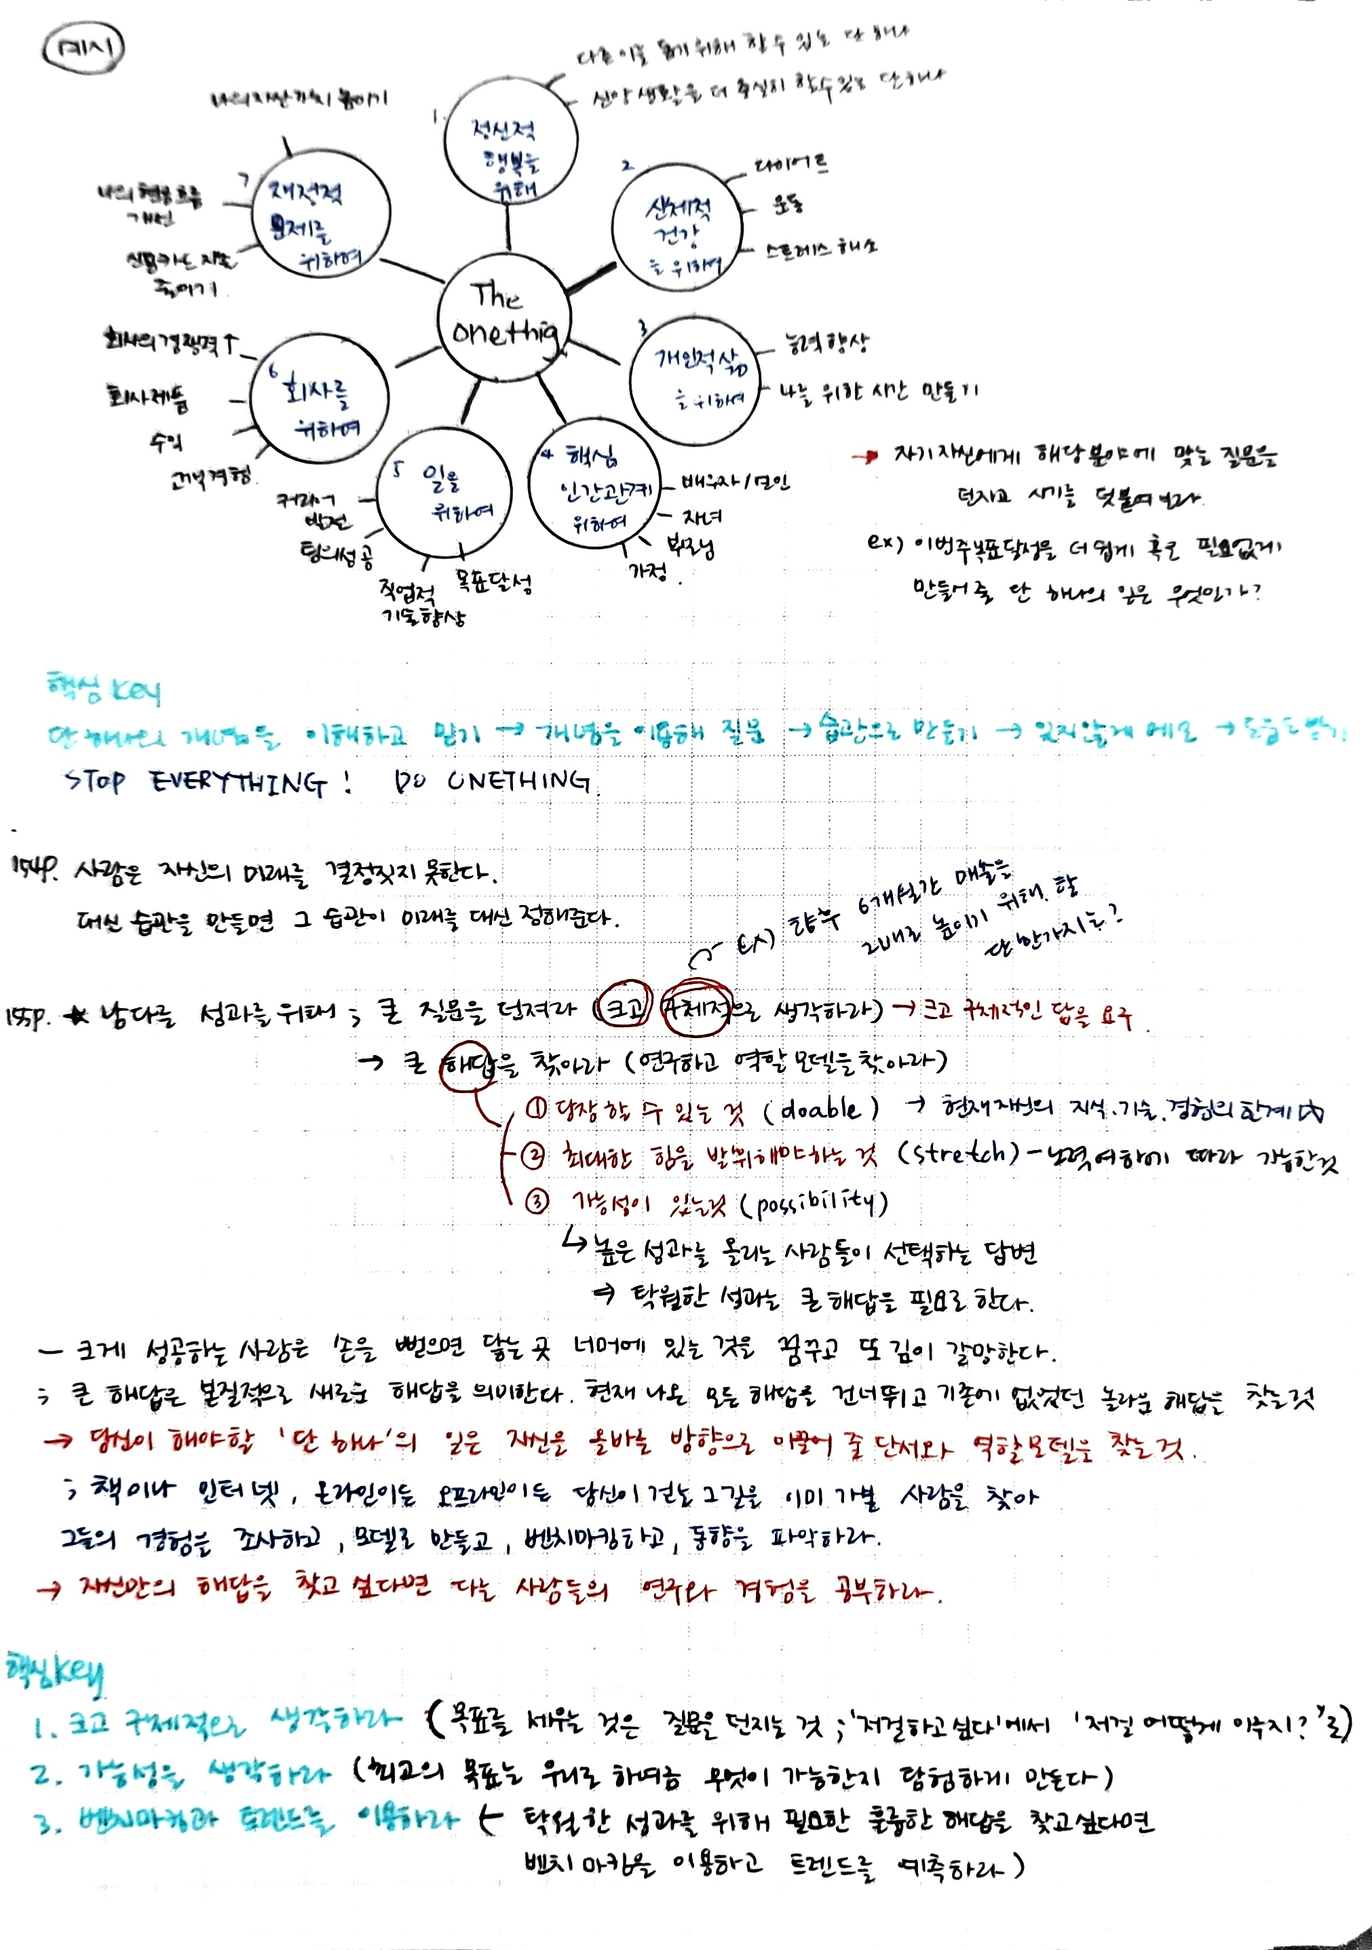 예시
다른 이를 돕기 위해 할 수 있는 단 하나
신앙생활을 더 충실히 할 수 있는 단 하나
1. 정신적
행복을
위해
2 신체적
건강
을 위하여
다이어트
운동
스트레스 해소
3 개인적 삶
을 위하여
능력향상
나를 위한 시간 만들기
4 핵심
인간관계
위하여
배우자/연인
자녀
부모님
가정.
5 일을
위하여
커리어
발전
팀의 성공
직업적
기술향상
목표달성
6 회사를
위하여
회사의 경쟁력↑
회사제품
수익
고객경험.
7 재정적
문제를
위하여
나의 자산가치 높이기
나의 현금흐름
개선
신용카드 지출
줄이기.
The
onething
→ 자기자신에게 해당분야에 맞는 질문을
던지고 시기를 덧붙여보라.
ex) 이번주 목표달성을 더 쉽게 혹은 필요없게
만들어 줄 단 하나의 일은 무엇인가?
핵심 key
단 하나의 개념을 이해하고 믿기 → 개념을 이용해 질문 → 습관으로 만들기 → 잊지않게 메모 → 도움도 받기
STOP EVERYTHING! DO ONETHING.
154p. 사람은 자신의 미래를 결정짓지 못한다.
대신 습관을 만들면 그 습관이 미래를 대신 정해준다.
ex) 향후 6개월간 매출을
2배로 높이기 위해 할
단 한가지는?
155p. ★ 남다를 성과를 위해 ; 큰 질문을 던져라 (크고 구체적으로 생각하라) → 크고 구체적인 답을 요구.
→ 큰 해답을 찾아라 (연구하고 역할모델을 찾아라)
① 당장 할 수 있는 것 (doable) → 현재 자신의 지식.기술.경험의 한계 內
② 최대한 힘을 발휘해야하는 것 (stretch) - 노력여하에 따라 가능한것
③ 가능성이 있는것 (possibility)
↳ 높은 성과를 올리는 사람들이 선택하는 답변
⇒ 탁월한 성과는 큰 해답을 필요로 한다.
- 크게 성공하는 사람은 손을 뻗으면 닿는 곳 너머에 있는 것을 꿈꾸고 또 깊이 갈망한다.
; 큰 해답은 본질적으로 새로운 해답을 의미한다. 현재 나온 모든 해답을 건너뛰고 기존에 없었던 놀라운 해답을 찾는것
→ 당신이 해야할 '단 하나'의 일은 자신을 올바른 방향으로 이끌어 줄 단서와 역할모델을 찾는 것.
; 책이나 인터넷, 온라인이든 오프라인이든 당신이 걷는 그길을 이미 가본 사람을 찾아
그들의 경험을 조사하고, 모델로 만들고, 벤치마킹하고, 동향을 파악하라.
→ 자신만의 해답을 찾고 싶다면 다른 사람들의 연구와 경험을 공부하라.
핵심key
1. 크고 구체적으로 생각하라 (목표를 세우는 것은 질문을 던지는 것 ; '저걸하고싶다'에서 '저걸 어떻게 이루지?'로)
2. 가능성을 생각하라 (최고의 목표는 우리로 하여금 무엇이 가능한지 탐험하게 만든다)
3. 벤치마킹과 트렌드를 이용하라 (탁월한 성과를 위해 필요한 훌륭한 해답을 찾고싶다면
벤치마킹을 이용하고 트렌드를 예측하라)